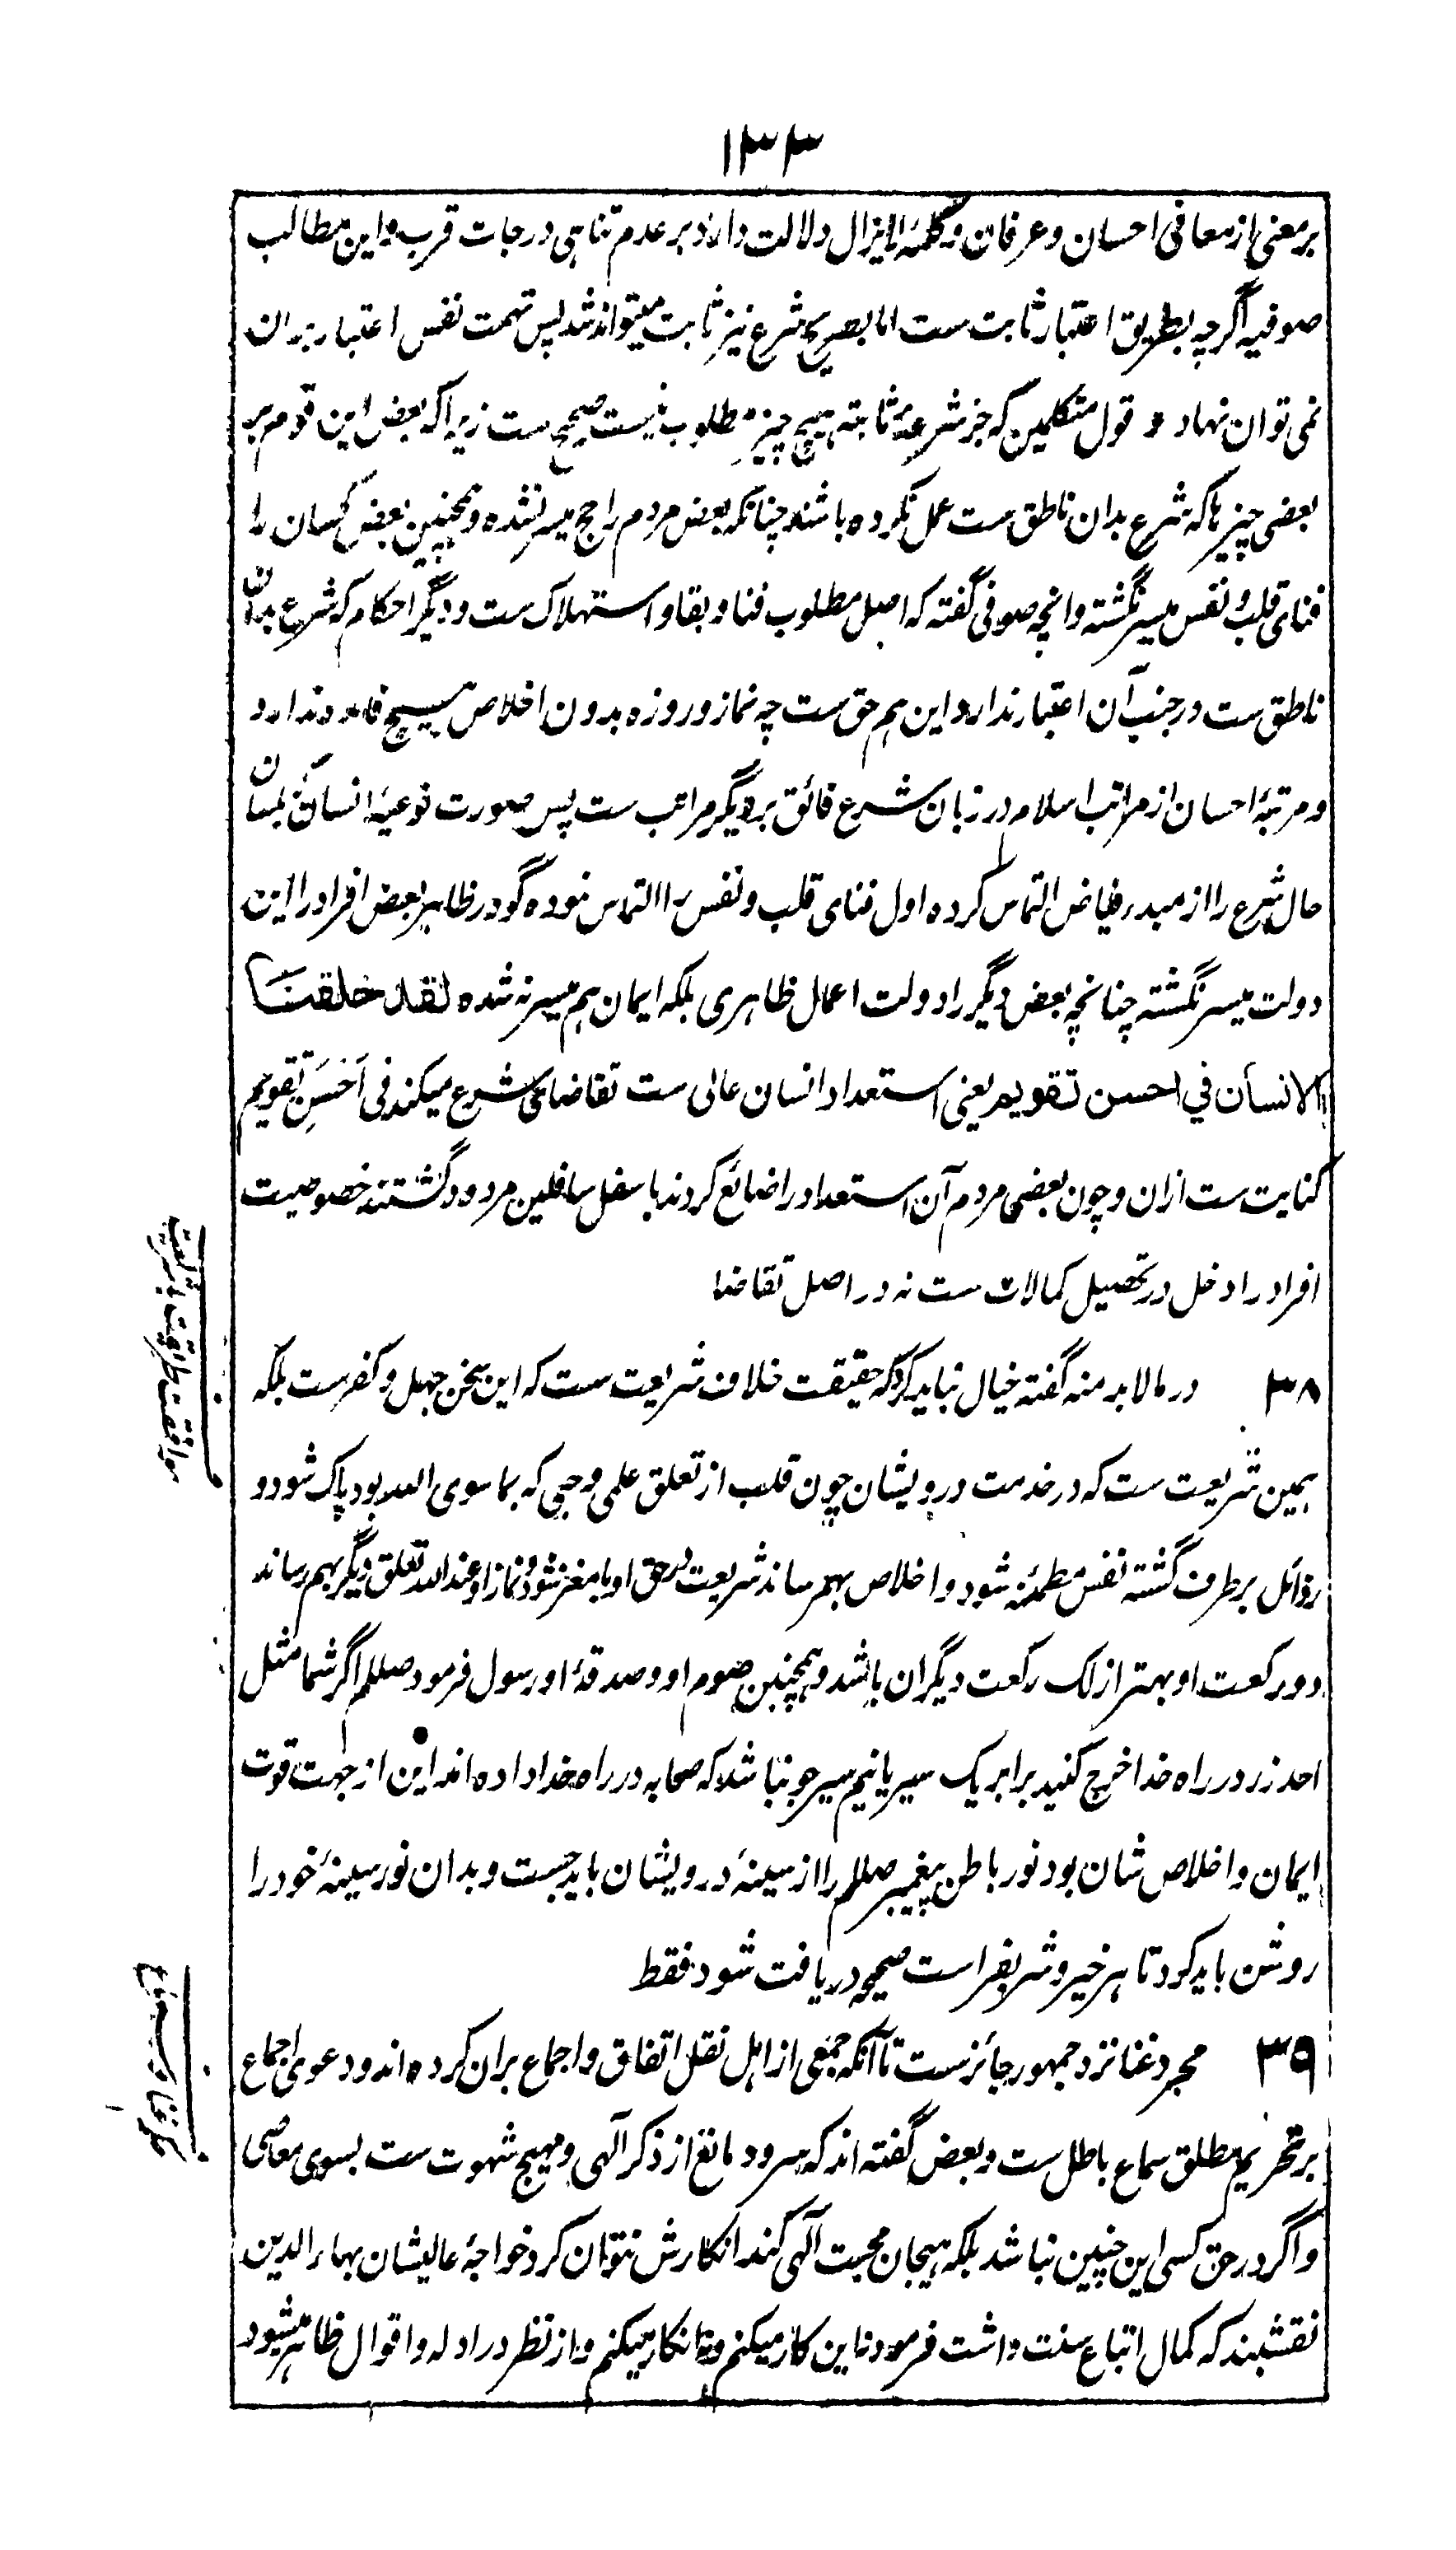 ۱۳۳
بر معنی از معانی احسان و عرفان و کلمۂ لایزال دلالت دارد بر عدم تناہی درجات قرب و این مطالب
صوفیہ اگرچہ بطریق اعتبار ثابت ست اما بصریح شرع نیز ثابت میتواند شد پس تہمت نفس اعتبار بران
نمی توان نہاد و قول متکلمین کہ جز شرع ثابتہ ہیچ چیز مطلوب نیست صحیح ست زیراکہ بعض این قوم بر
بعضی چیزہا کہ شرع بدان ناطق ست عمل نکردہ باشند چنانکہ بعض مردم را حج میسر نشدہ و ہمچنین بعض کسان را
فنای قلب و نفس میسر نگشتہ و انچہ صوفی گفتہ کہ اصل مطلوب فنا و بقا و استہلاک ست و دیگر احکام کہ شرع بدان
ناطق ست در جنب آن اعتبار ندارد این ہم حق ست چہ نماز و روزہ بدون اخلاص ہیچ فائدہ ندارد
و مرتبۂ احسان از مراتب اسلام در زبان شرع فائق بر دیگر مراتب ست پس صورت نوعیۂ انسان بلسان
حال شرع را از مبدء فیاض التماس کردہ اول فنای قلب و نفس را التماس نمودہ گو در ظاہر بعض افراد را این
دولت میسر نگشتہ چنانچہ بعض دیگر را دولت اعمال ظاہری بلکہ ایمان ہم میسر نہ شدہ لقد خلقنا
الانسان في احسن تقویم یعنی استعداد انسان عالی ست تقاضای شرع میکند فی اَحْسَنِ تقویم
کنایت ست ازان و چون بعضی مردم آن استعداد را ضائع کردند باسفل سافلین مردود گشتند خصوصیت
افراد را دخل در تحصیل کمالات ست نہ در اصل تقاضا
۳۸ در مالابد منہ گفتہ خیال نباید کرد کہ حقیقت خلاف شریعت ست کہ این سخن جہل و کفرست بلکہ
ہمین شریعت ست کہ در خدمت درویشان چون قلب از تعلق علمی و حبی کہ بما سوی اللہ بود پاک شود و
رذائل برطرف گشتہ نفس مطمئنہ شود و اخلاص بہم رساند شریعت در حق او با مغز شود و نماز او عند اللہ تعلق دیگر بہم رساند
دو رکعت او بہتر از لک رکعت دیگران باشد و ہمچنین صوم او و صدقۂ او رسول فرمود صلعم اگر شما مثل
احد زر در راہ خدا خرچ کنید برابر یک سیر یا نیم سیر جو نباشد کہ صحابہ در راہ خدا دادہ اند این از جہت قوت
ایمان و اخلاص شان بود نور باطن پیغمبر صلعم را از سینۂ درویشان باید جست و بدان نور سینۂ خود را
روشن باید کرد تا ہر خیر و شر بفراست صحیحہ دریافت شود فقط
۳۹ مجرد غنا نزد جمہور جائزست تا آنکہ جمعی از اہل نقل اتفاق و اجماع بران کردہ اند و دعوی اجماع
بر تحریم مطلق سماع باطل ست و بعض گفتہ اند کہ سرود مانع از ذکر آلہی و مہیج شہوت ست بسوی معاصی
و اگر در حق کسی این چنین نباشد بلکہ ہیجان محبت آلہی کند انکارش نتوان کرد خواجۂ عالیشان بہاء الدین
نقشبند کہ کمال اتباع سنت داشت فرمود نہ این کار میکنم و نہ انکار میکنم و از نظر در ادلہ و اقوال ظاہر میشود
موافقت طریقت با شریعت